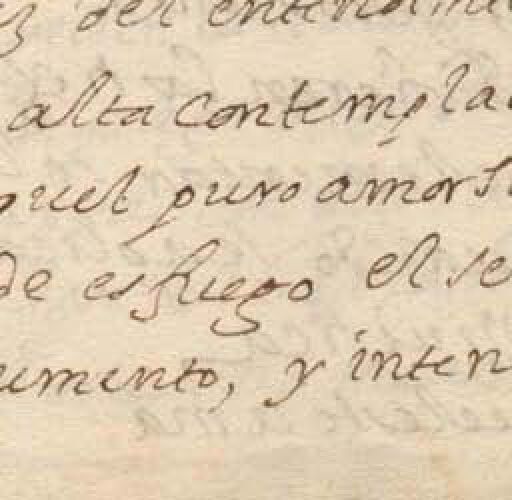 del entendimi
alta contempla
quel puro amor s
de es fuego el se
umento, y inten